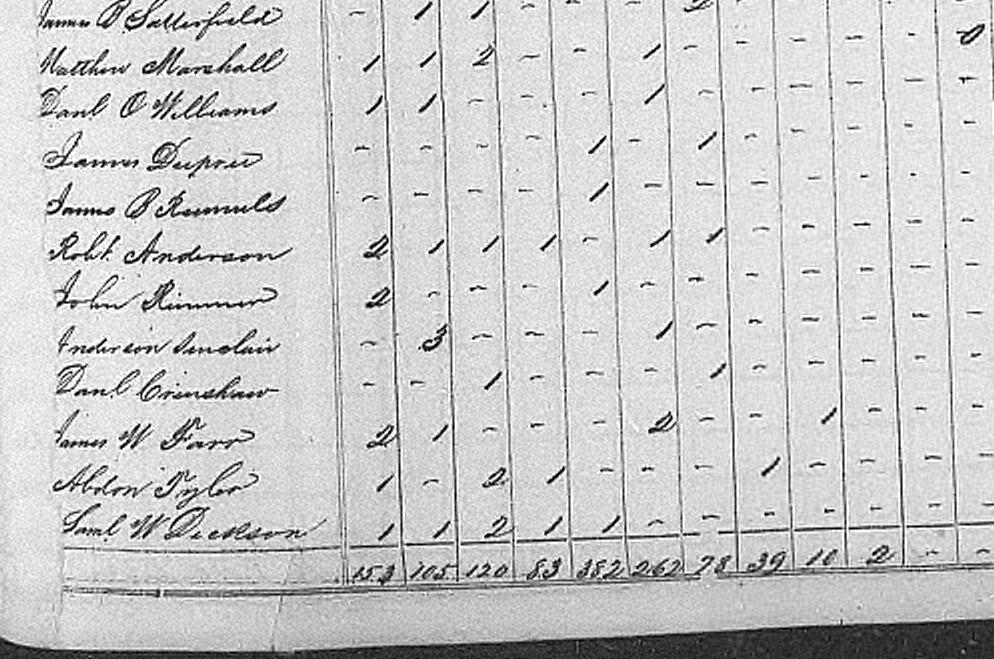 James B Satterfield - 1 1 - - - 2 - - - - 0
Matthew Marshall 1 1 2 - - 1 - - - - - -
Danl O Williams 1 1 - - - 1 - - - - - -
James Dupree - - - - 1 - 1 - - - - -
James B - - - - 1 - - - - - - -
Robt. Anderson 2 1 1 1 - 1 1 - - - - -
John Rimmer 2 - - - 1 - - - - - - -
Anderson Sinclair - 3 - - - 1 - - - - - -
Danl Crenshaw - - 1 - - - 1 - - - - -
James W Farr 2 1 - - - 2 - - 1 - - -
Abdon Tyler 1 - 2 1 - - - 1 - - - -
Saml W Dickson 1 1 2 1 1 - - - - - - -
153 105 120 83 382 262 78 39 10 2 - -